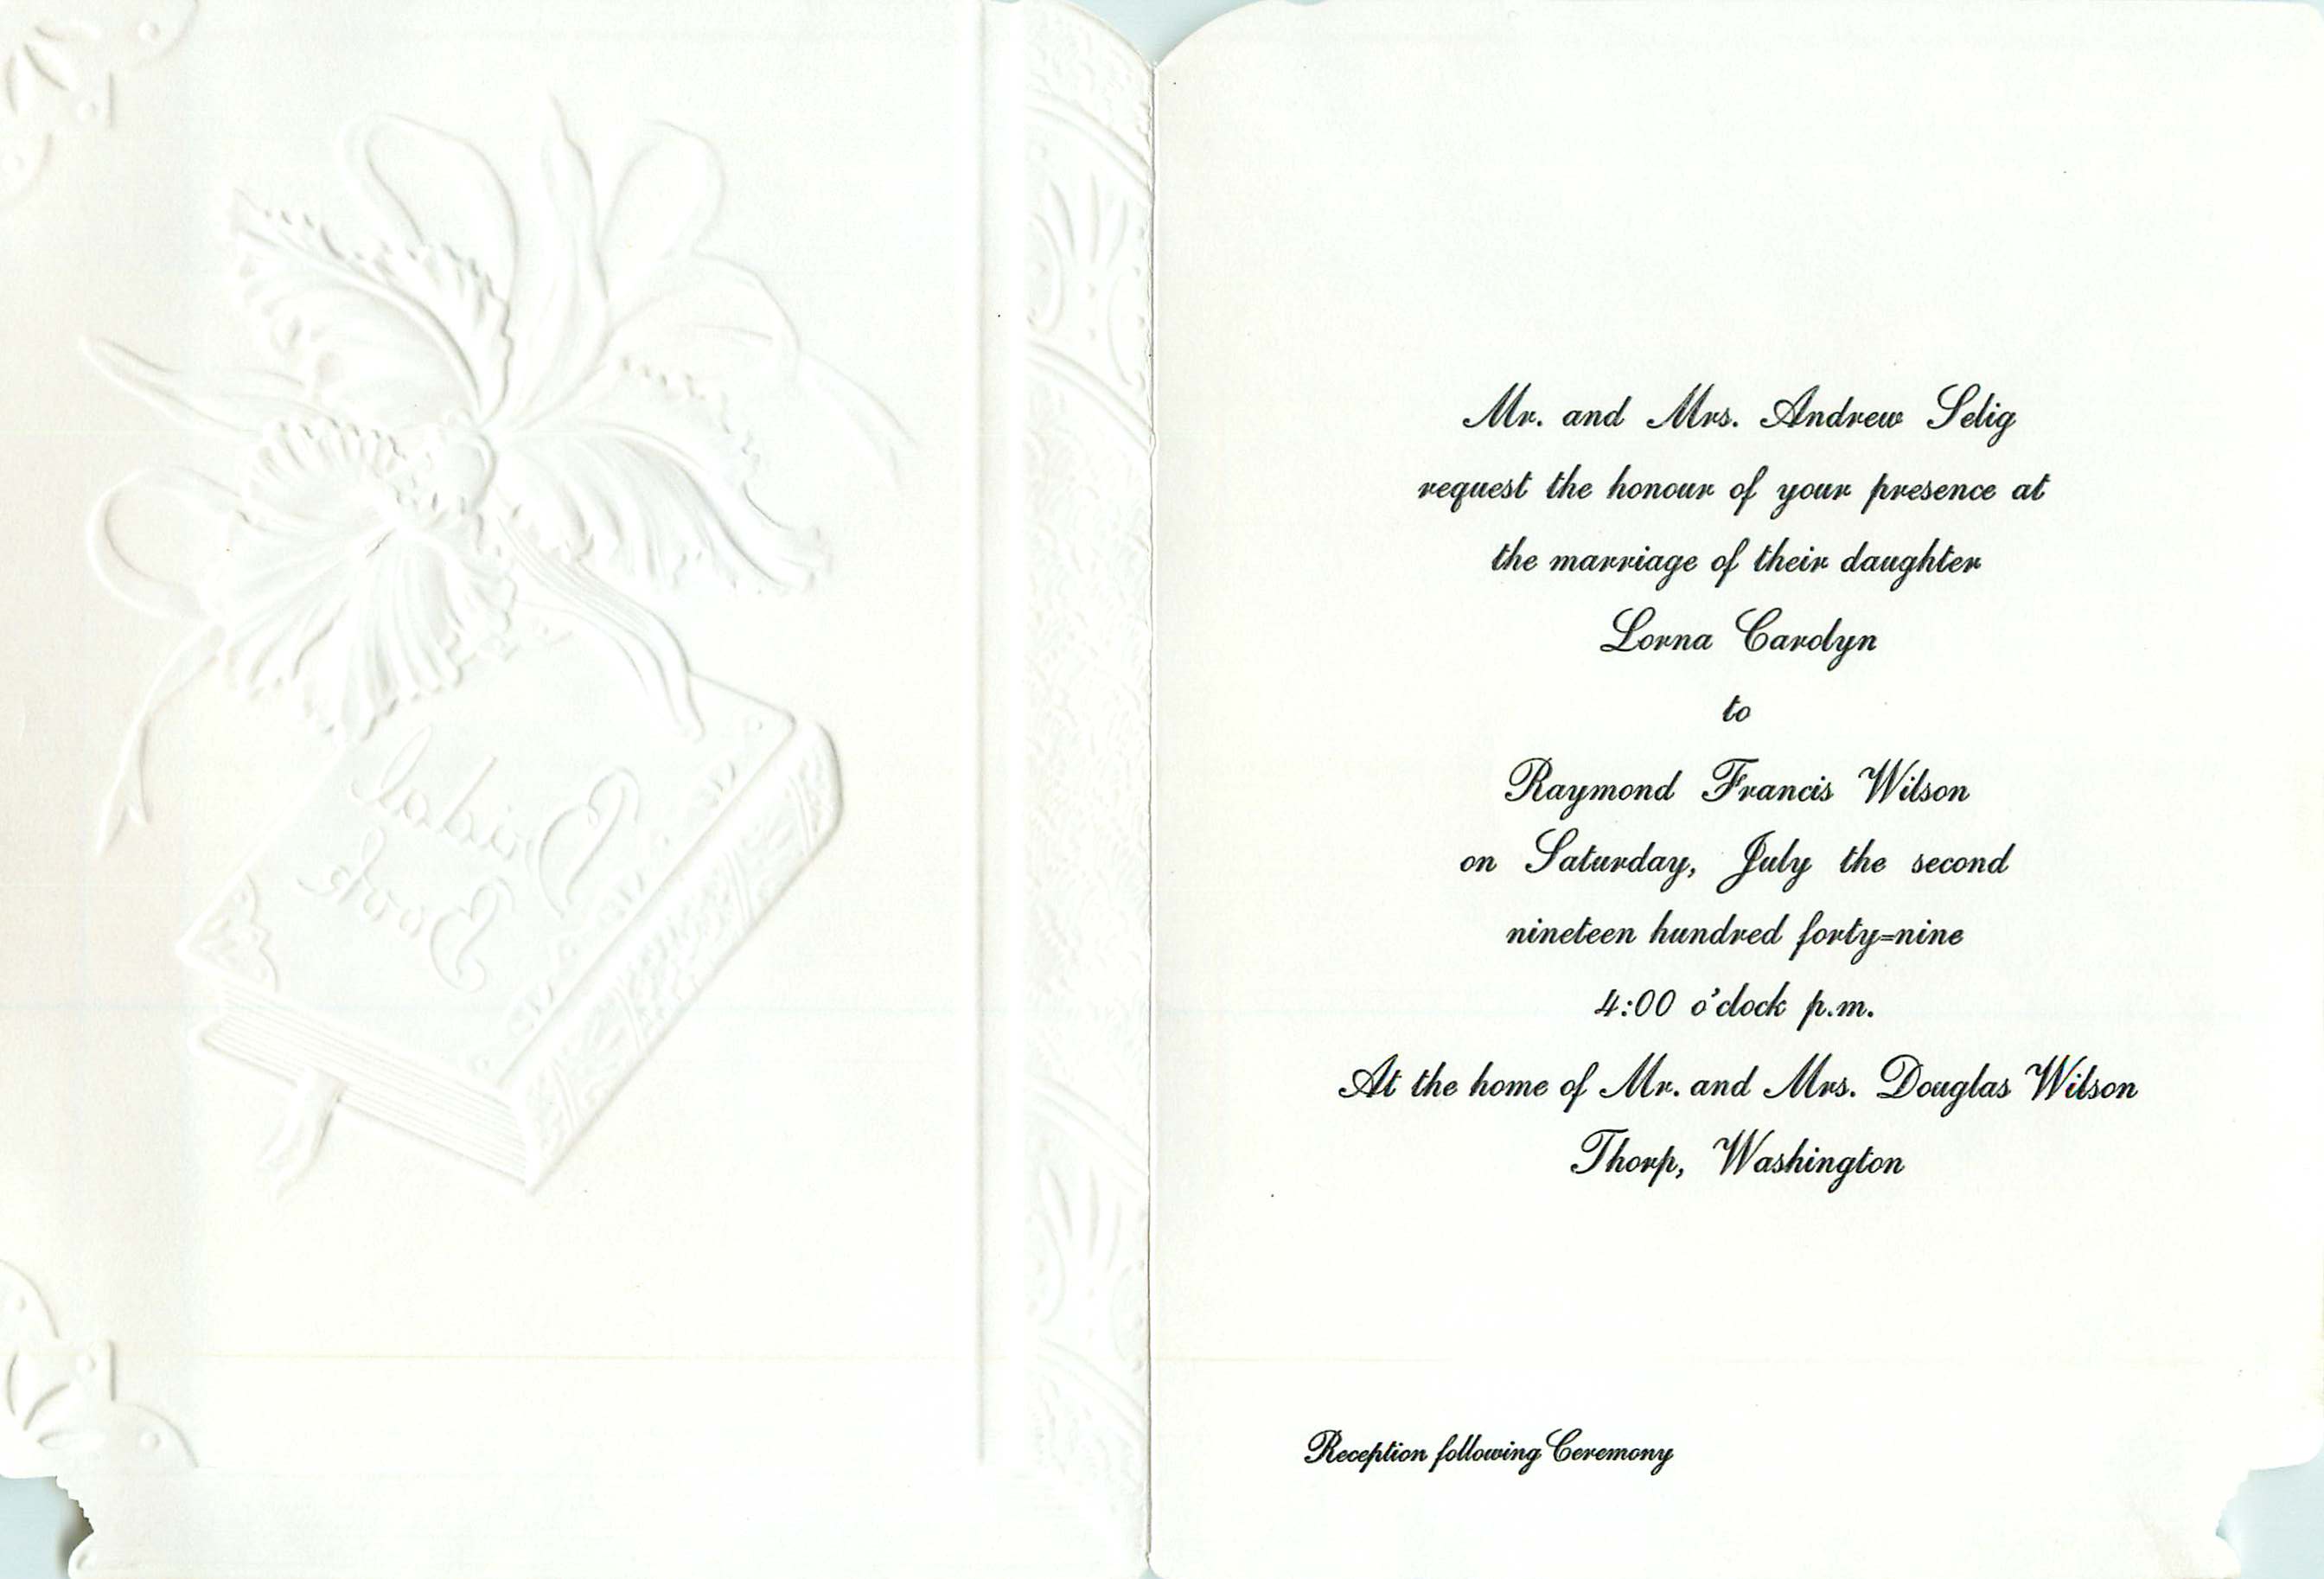 Bridal
Book
Mr. and Mrs. Andrew Selig
request the honour of your presence at
the marriage of their daughter
Lorna Carolyn
to
Raymond Francis Wilson
on Saturday, July the second
nineteen hundred forty=nine
4:00 o'clock p.m.
At the home of Mr. and Mrs. Douglas Wilson
Thorp, Washington
Reception following Ceremony